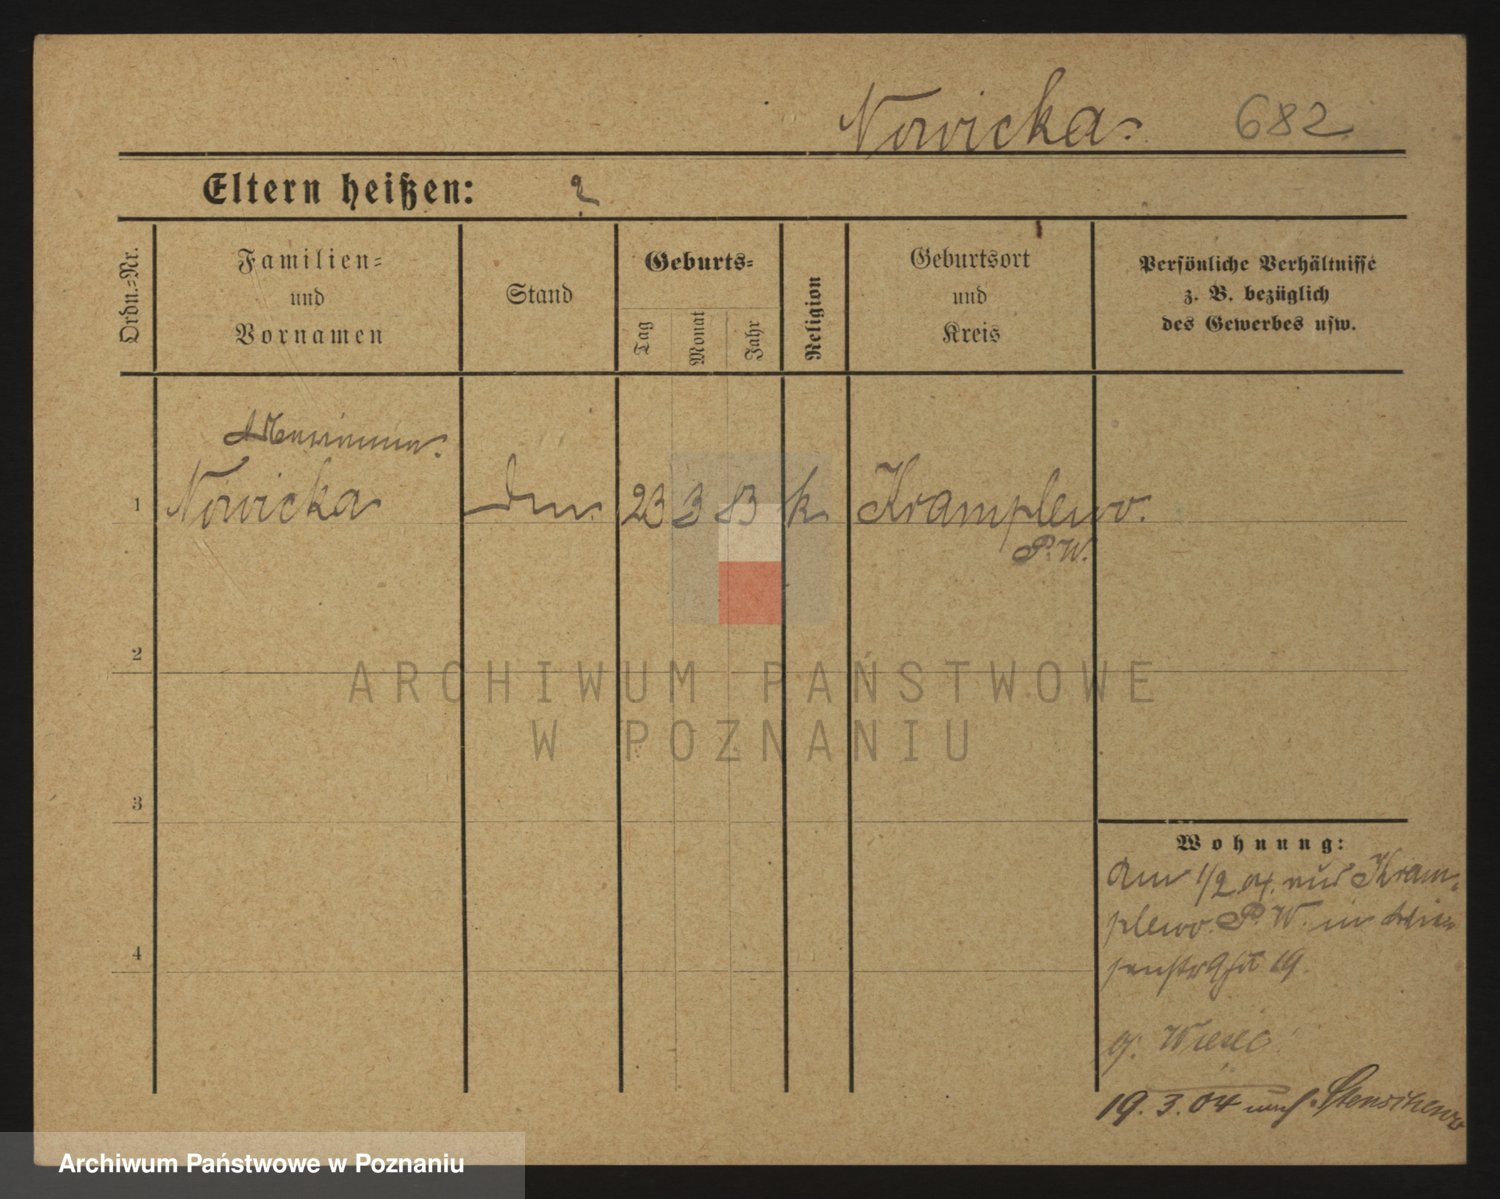 Nowicka. 682
Eltern heißen: ?
Ordn.-Nr.
Familien-
und
Vornamen
Stand
Geburts-
Tag
Monat
Jahr
Religion
Geburtsort
und
Kreis
Persönliche Verhältnisse
z. B. bezüglich
des Gewerbes usw.
1 Nowicka 23 3 83 k Kramplewo.
P. W.
2
ARCHIWUM PAŃSTWOWE
W POZNANIU
3
Wohnung:
Am 1/2 04. aus Kram-
plewo. P. W. in
19.
4
19. 3. 04 nach Stenschewo
Archiwum Państwowe w Poznaniu